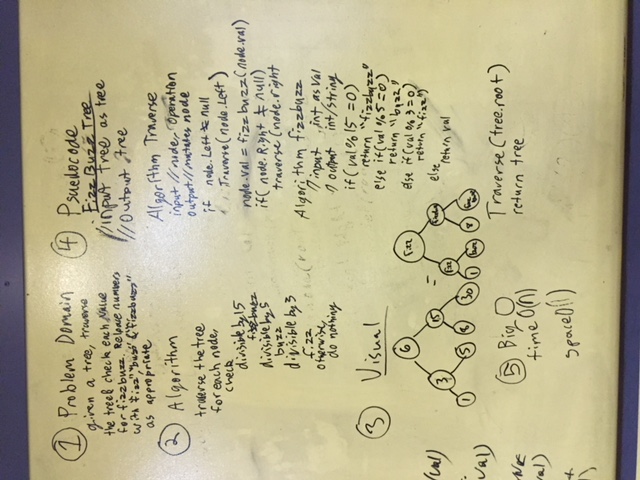 1 Problem Domain
given a tree, traverse
the tree & check each value
for fizzbuzz. Replace numbers
with "fizz" "buzz" & "fizzbuzz"
as appropriate
2 Algorithm
traverse the tree
for each node,
check
divisible by 15
fizzbuzz
divisible by 5
buzz
divisible by 3
fizz
otherwise,
do nothing
3 Visual
6
3 15
1 5 8 30
=
fizz
fizz fizzbuzz
1 buzz 8 fizzbuzz
5 Big O
time O(n)
space O(1)
4 Psuedocode
Fizz Buzz Tree
// input tree as tree
// Output tree
Algorithm Traverse
input // node, operation
output // mutates node
if node.Left ≠ null
Traverse(node.Left)
node.val = fizzbuzz(node.val)
if( node.Right ≠ null)
traverse (node.right
Algorithm fizzbuzz
input int as val
output int/string
if (val % 15 = 0)
return "fizzbuzz"
else if (val % 5 = 0)
return "buzz"
else if (val % 3 = 0)
return "fizz"
else
return val
Traverse (tree.root)
return tree
val)
val)
val)